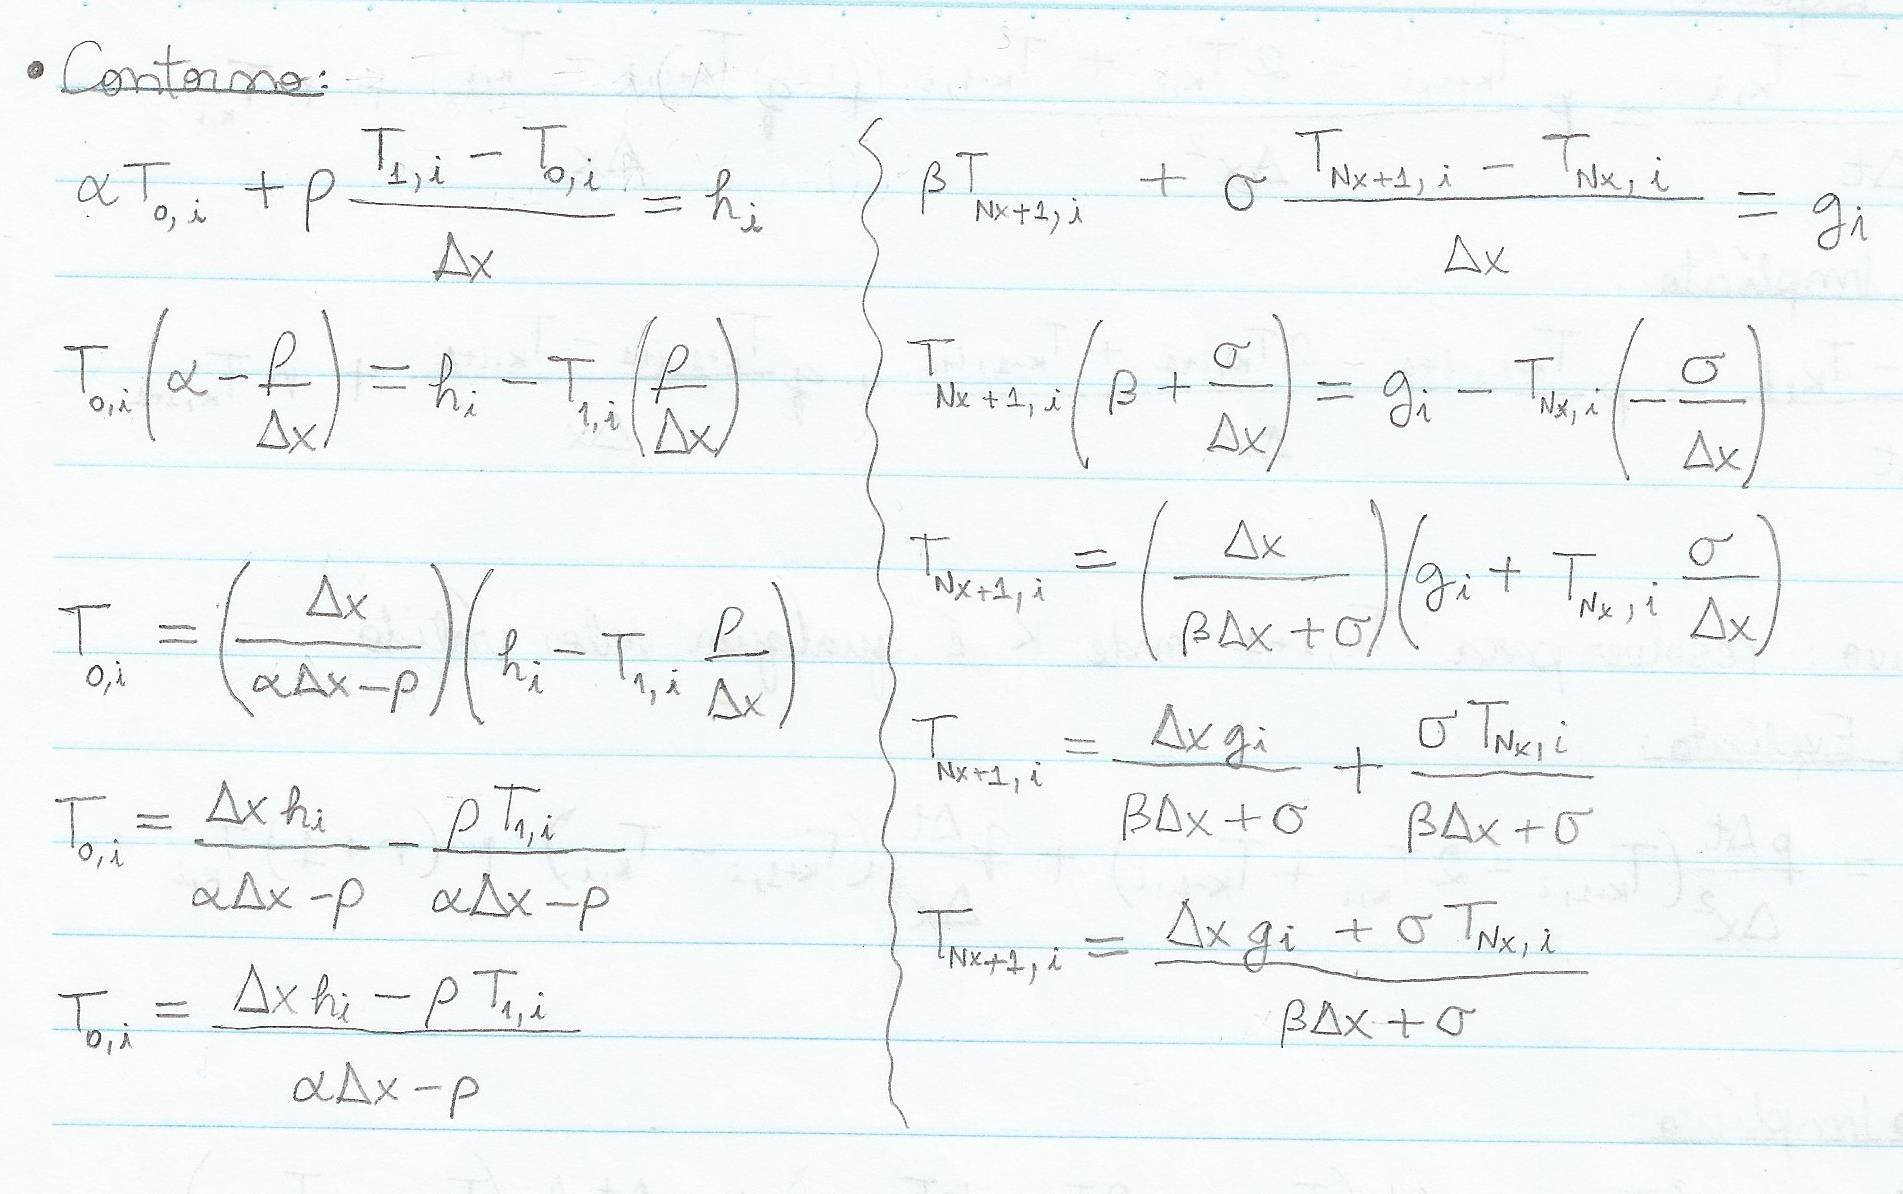 • Contorno:
αT_{0,i} + ρ (T_{1,i} − T_{0,i})/Δx = h_i
T_{0,i} (α − ρ/Δx) = h_i − T_{1,i} (ρ/Δx)
T_{0,i} = (Δx/(αΔx − ρ)) (h_i − T_{1,i} ρ/Δx)
T_{0,i} = Δx h_i/(αΔx − ρ) − ρ T_{1,i}/(αΔx − ρ)
T_{0,i} = (Δx h_i − ρ T_{1,i})/(αΔx − ρ)
βT_{Nx+1,i} + σ (T_{Nx+1,i} − T_{Nx,i})/Δx = g_i
T_{Nx+1,i} (β + σ/Δx) = g_i − T_{Nx,i} (−σ/Δx)
T_{Nx+1,i} = (Δx/(βΔx + σ)) (g_i + T_{Nx,i} σ/Δx)
T_{Nx+1,i} = Δx g_i/(βΔx + σ) + σ T_{Nx,i}/(βΔx + σ)
T_{Nx+1,i} = (Δx g_i + σ T_{Nx,i})/(βΔx + σ)